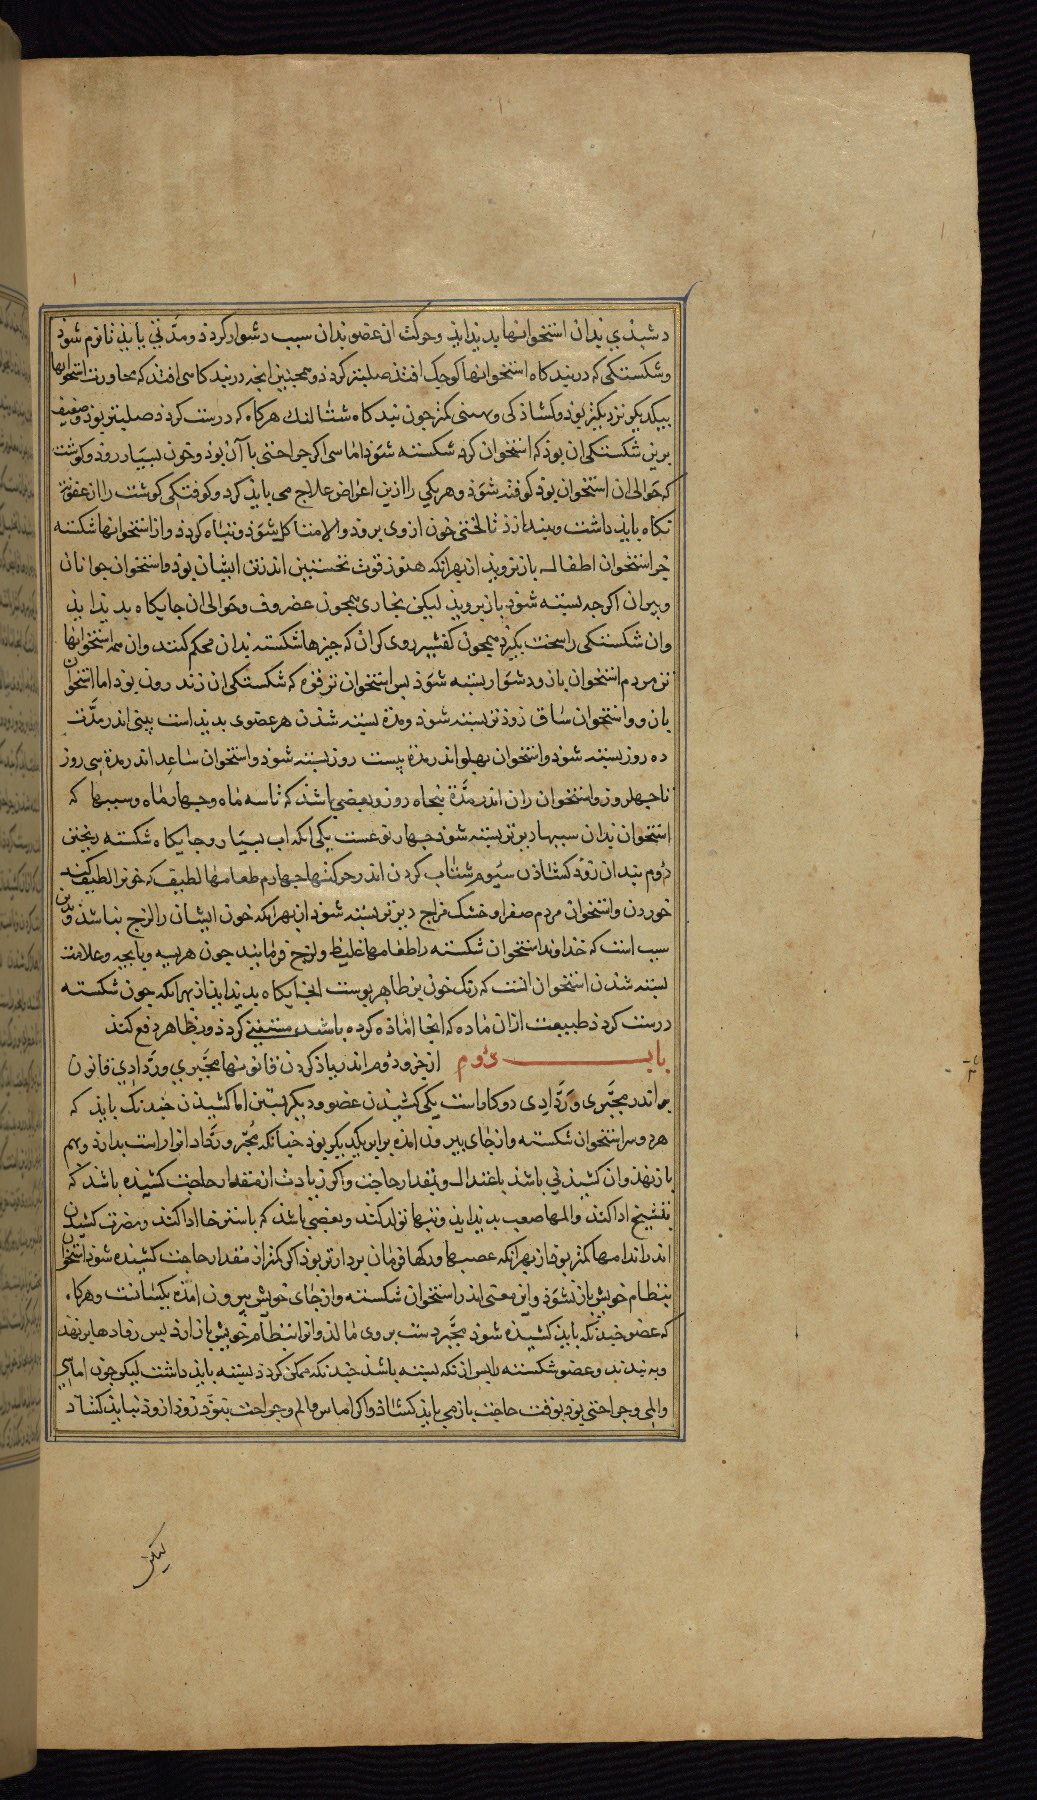 دشبذی بدان استخوانها بدیذ ایذ وحرکت ان عضو بدان سبب دشوار کردذ ومدّتی بایذ تا نرم شوذ
وشکستکی که در بندکاه استخوانها کوچک افتذ صلبتر کردذ وهمچنین انچه در بندکاهی افتذ که مجاورت استخوانها
بیکدیکر نزدیکتر بوذ وکشاذکی وسستی کمتر چون بندکاه شتالنک هرکاه که درست کردذ صلبتر بوذ وضعیف
برین شکستکی ان بوذ که استخوان کرد شکسته شوذ اماسی اکر جراحتی با آن بوذ وخون بسیار روذ وکوشت
که حوالی ان استخوان بوذ کوفته شوذ وهر یکی را ازین اعراض علاج می بایذ کرد وکوفتکی کوشت را از عفونت
نکاه بایذ داشت وببند ازذ تا لختی خون ازوی بروذ والا متاکل شوذ وتباه کردذ واز استخوانها شکسته
جز استخوان اطفال باز نرویذ از بهر انکه هنوز قوت نخستین اندر تن ایشان بوذ واستخوان جوانان
وپیران اکرچه بسته شوذ باز نرویذ لیکن بخاری همچون غضروف وحوالی ان جایکاه بدیذ ایذ
وان شکستکی را سخت بکیرذ همچون کفشیر روی کران که چیزها شکسته بدان محکم کنند وان همه استخوانها
تن مردم استخوان بازو دشوار بسته شوذ پس استخوان ترقوه که شکستکی ان زند رون بوذ اما استخوان
بازو واستخوان ساق زوذتر بسته شوذ ومدّة بسته شذن هر عضوی بدیذ است بینی اندر مدّت
ده روز بسته شوذ واستخوان بهلو اندر مدّة بیست روز بسته شوذ واستخوان ساعد اندر مدّة سی روز
تا چهل روز واستخوان ران اندر مدّة بنجاه روز وبعضی باشذ که تا سه ماه وچهار ماه وسببها که
استخوان بدان سببها دیرتر بسته شوذ چهار نوعست یکی انکه اب بسیار وجایکاه شکسته ریختن
دوم بند ان زوذ کشاذن سیوم شتاب کردن اندر حرکتها چهارم طعامها لطیف که خونرا لطیف کند
خوردن واستخوان مردم صفرا وخشک مزاج دیرتر بسته شوذ از بهر انکه خون ایشان را لزج نباشذ وبدین
سبب است که خداوند استخوان شکسته را طعامها غلیظ ولزج فرمایند چون هریسه وپایچه وعلامت
بسته شدن استخوان انست که رنک خون بر ظاهر پوست انجایکاه بدیذ ایذ از بهر انکه چون شکسته
درست کردذ طبیعت ازان ماده که انجا اماذه کرده باشد مستغنی کردذ وبظاهر دفع کند
باب دوم از جزو دوم اندر یاذ کردن قانونها مجبّری وردّادی قانون
ـها اندر مجبّری وردّادی دو کار است یکی کشیذن عضو ودیکر بستن اما کشیذن جندنک بایذ که
هر دو سر استخوان شکسته واز جای بیرون امده برابر یکدیکر بوذ جنانکه مجبّر وردّاد انرا راست بدارذ وبهم
باز نهذ وان کشیذنی باشذ باعتدال وبمقدار حاجت واکر زیادت از مقدار حاجت کشیذه باشذ که
بتشنج ادا کند والمها صعب بدیذ ایذ وتبها تولد کند وبعضی باشذ که باسترخا ادا کند ومضرت کشیذن
اندر اندامها کمتر بوذ از بهر انکه عصبها ورکها فرمان بردارتر بوذ اکر کمتر از مقدار حاجت کشیده شوذ استخوان
بنظام خویش باز نشوذ واین معنی اندر استخوان شکسته واز جای خویش بیرون امذه یکسانست وهرکاه
که عضو جندنکه بایذ کشیذه شوذ مجبّر دست بر وی مالذ وانرا بنظام خویش باز ارذ پس رفادها برنهذ
وببندند وعضو شکسته را پس از انکه بسته باشذ جندنکه ممکن کردذ بسته بایذ داشت لیکن چون اماسی
والمی وجراحتی بوذ بوقت حاجت باز می بایذ کشاذ واکر اماس والم وجراحت نبوذ زوذ از وذ نبایذ کشاذ
لیکن